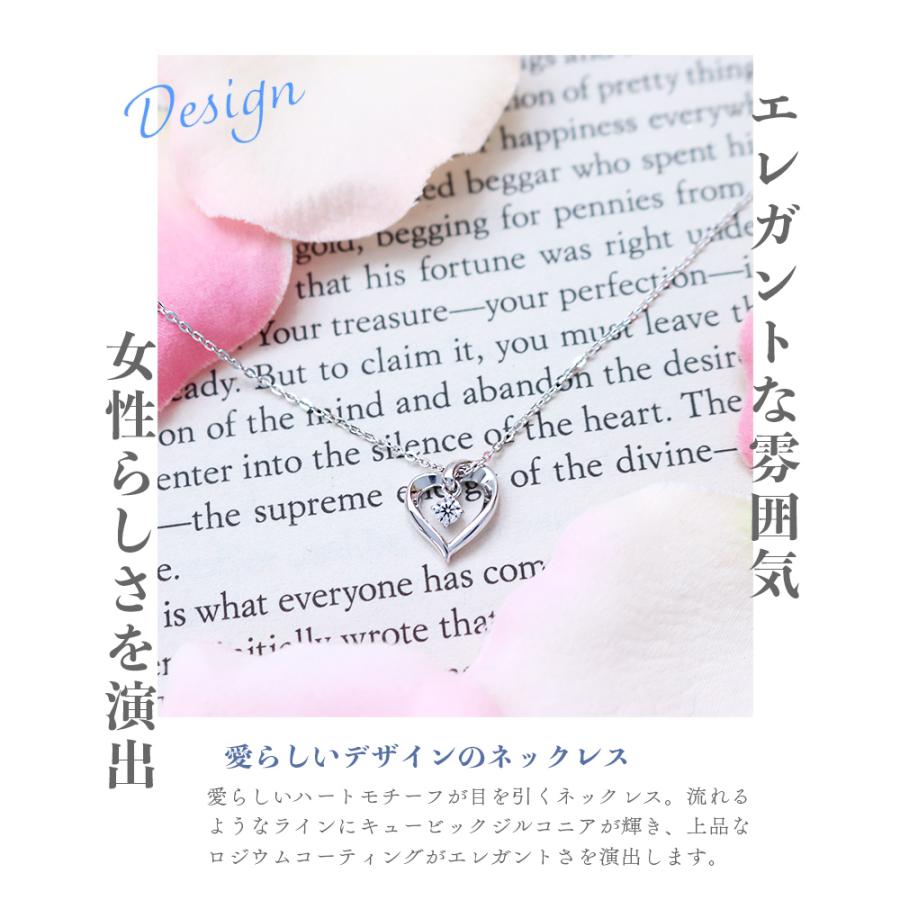 Design
エレガントな雰囲気
女性らしさを演出
ion of pretty thing
happiness everywh
ed beggar who spent hi
gold, begging for pennies from
that his fortune was right unde
Your treasure—your perfection—i
eady. But to claim it, you must leave th
on of the mind and abandon the desire
enter into the silence of the heart. The
—the supreme energy of the divine—
e.
is what everyone has com
initially wrote that
愛らしいデザインのネックレス
愛らしいハートモチーフが目を引くネックレス。流れる
ようなラインにキュービックジルコニアが輝き、上品な
ロジウムコーティングがエレガントさを演出します。